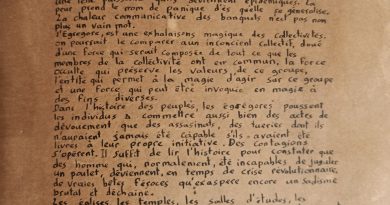 une fois puissants ils deviennent épidémiques. La
peur prend le nom de panique dès qu'elle se généralise.
La chaleur communicative des banquets n'est pas non
plus un vain mot.
l'Egrégore, est une exhalaisons magique des collectivités.
on pourrait le comparer aux inconscient collectif, doué
d'une force qui serait composée de tout ce que les
membres de la collectivité ont en commun, la force
occulte qui préserve les valeurs, de ce groupe,
l'entité qui permet à la magie d'agir sur ce groupe
et une force qui peut être invoquée en magie à
des fins diverses.
Dans l'histoire des peuples, les égrégores poussent
les individus à commettre aussi bien des actes de
dévouement que des assassinats, des tueries dont ils
n'auraient jamais été capable s'ils avaient été
livrés à leur propre initiative. Des contagions
s'opèrent. Il suffit de lire l'histoire pour constater que
des homme qui, normalement, été incapables de juguler
un poulet, deviennent, en temps de crise révolutionnaire,
de vraies bêtes féroces qu'exaspère encore un sadisme
brutal et déchaîné.
Les églises, les temples, les salles d'études, les